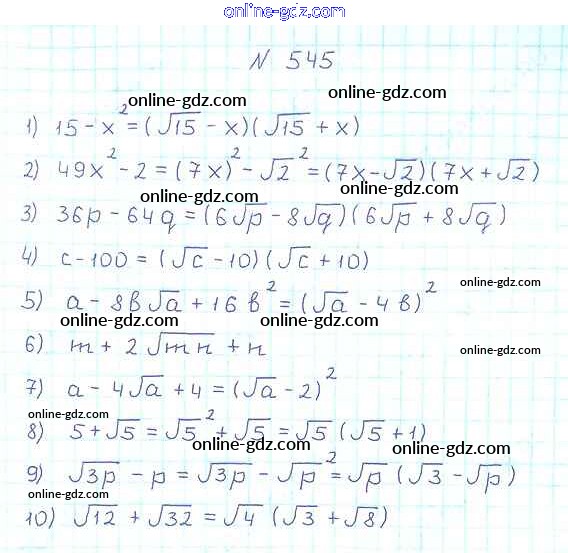 online-gdz.com
N 545
online-gdz.com
1) 15 - x² = (√15 - x)(√15 + x)
online-gdz.com
2) 49x² - 2 = (7x)² - √2² = (7x - √2)(7x + √2)
online-gdz.com online-gdz.com
3) 36p - 64q = (6√p - 8√q)(6√p + 8√q)
online-gdz.com
4) c - 100 = (√c - 10)(√c + 10)
online-gdz.com
5) a - 8b√a + 16b² = (√a - 4b)²
online-gdz.com online-gdz.com
6) m + 2√mn + n
online-gdz.com
7) a - 4√a + 4 = (√a - 2)²
online-gdz.com
8) 5 + √5 = √5² + √5 = √5 (√5 + 1)
online-gdz.com online-gdz.com
9) √3p - p = √3p - √p² = √p (√3 - √p)
online-gdz.com
10) √12 + √32 = √4 (√3 + √8)